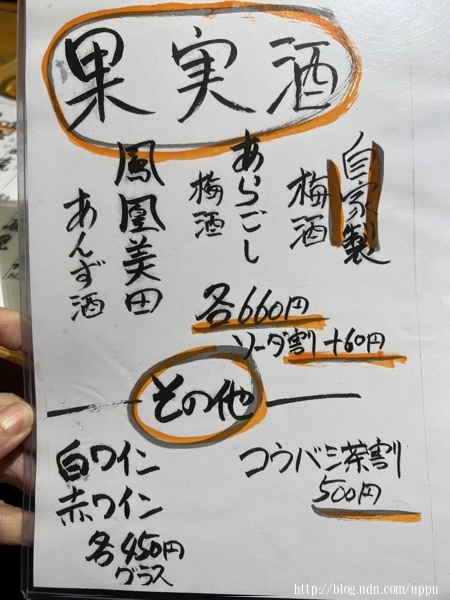 果実酒
自家製
梅酒
あらごし
梅酒
鳳凰美田
あんず酒
各660円
ソーダ割+60円
その他
白ワイン
赤ワイン
各450円
グラス
コウバシ茶割
500円
http://blog.ndn.com/uppu